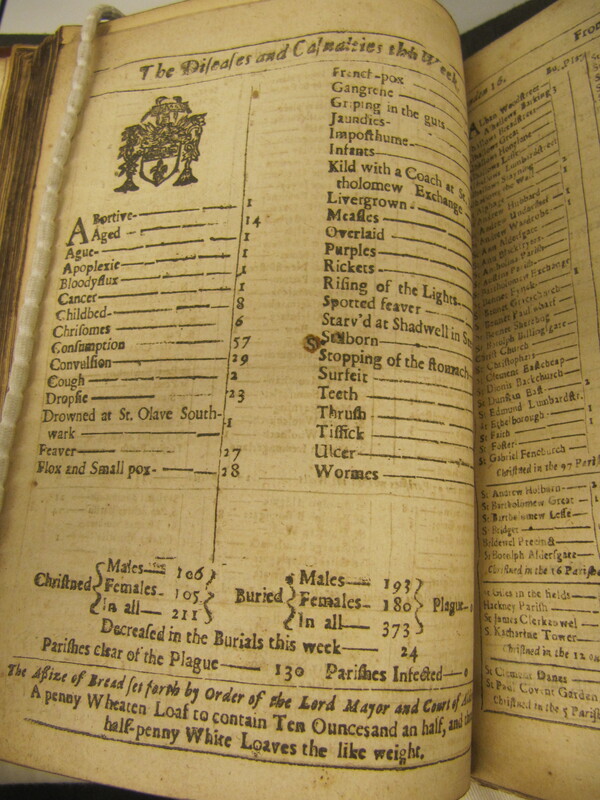 The Diseases and Casualties this Week.
Abortive 1
Aged 14
Ague 1
Apoplexie 1
Bloodyflux 1
Cancer 1
Childbed 8
Chrisomes 6
Consumption 57
Convulsion 29
Cough 2
Dropsie 23
Drowned at St. Olave South-
wark 1
Feaver 27
Flox and Small pox 28
French-pox
Gangrene
Griping in the guts
Jaundies
Imposthume
Infants
Kild with a Coach at St.
tholomew Exchange
Livergrown
Measles
Overlaid
Purples
Rickets
Rising of the Lights
Spotted feaver
Starv'd at Shadwell in
Stilborn
Stopping of the stomach
Surfeit
Teeth
Thrush
Tissick
Ulcer
Wormes
Christned Males 106 Females 105 In all 211
Buried Males 193 Females 180 In all 373
Plague
Decreased in the Burials this week 24
Parishes clear of the Plague 130 Parishes Infected 0
The Assize of Bread set forth by Order of the Lord Mayor and Court of
A penny Wheaten Loaf to contain Ten Ounces and an half, and
half-penny White Loaves the like weight.
From
St Christophers
St Clement Eastcheap
St Dionis Backchurch
St Dunstan East
St Edmund Lumbardstr.
St Ethelborough
St Faith
St Foster
St Gabriel Fenchurch
Christned in the 97 Parish
St Andrew Holborn
St Bartholomew Great
St Bartholomew Lesse
St Bridget
Bridewel Precinct
St Botolph Aldersgate
Christned in the 16 Parishe
St Giles in the fields
Hackney Parish
St James Clerkenwel
St Katharine Tower
Christned in the 12 ou
St Clement Danes
St Paul Covent Garden
Christned in the 5 Parish